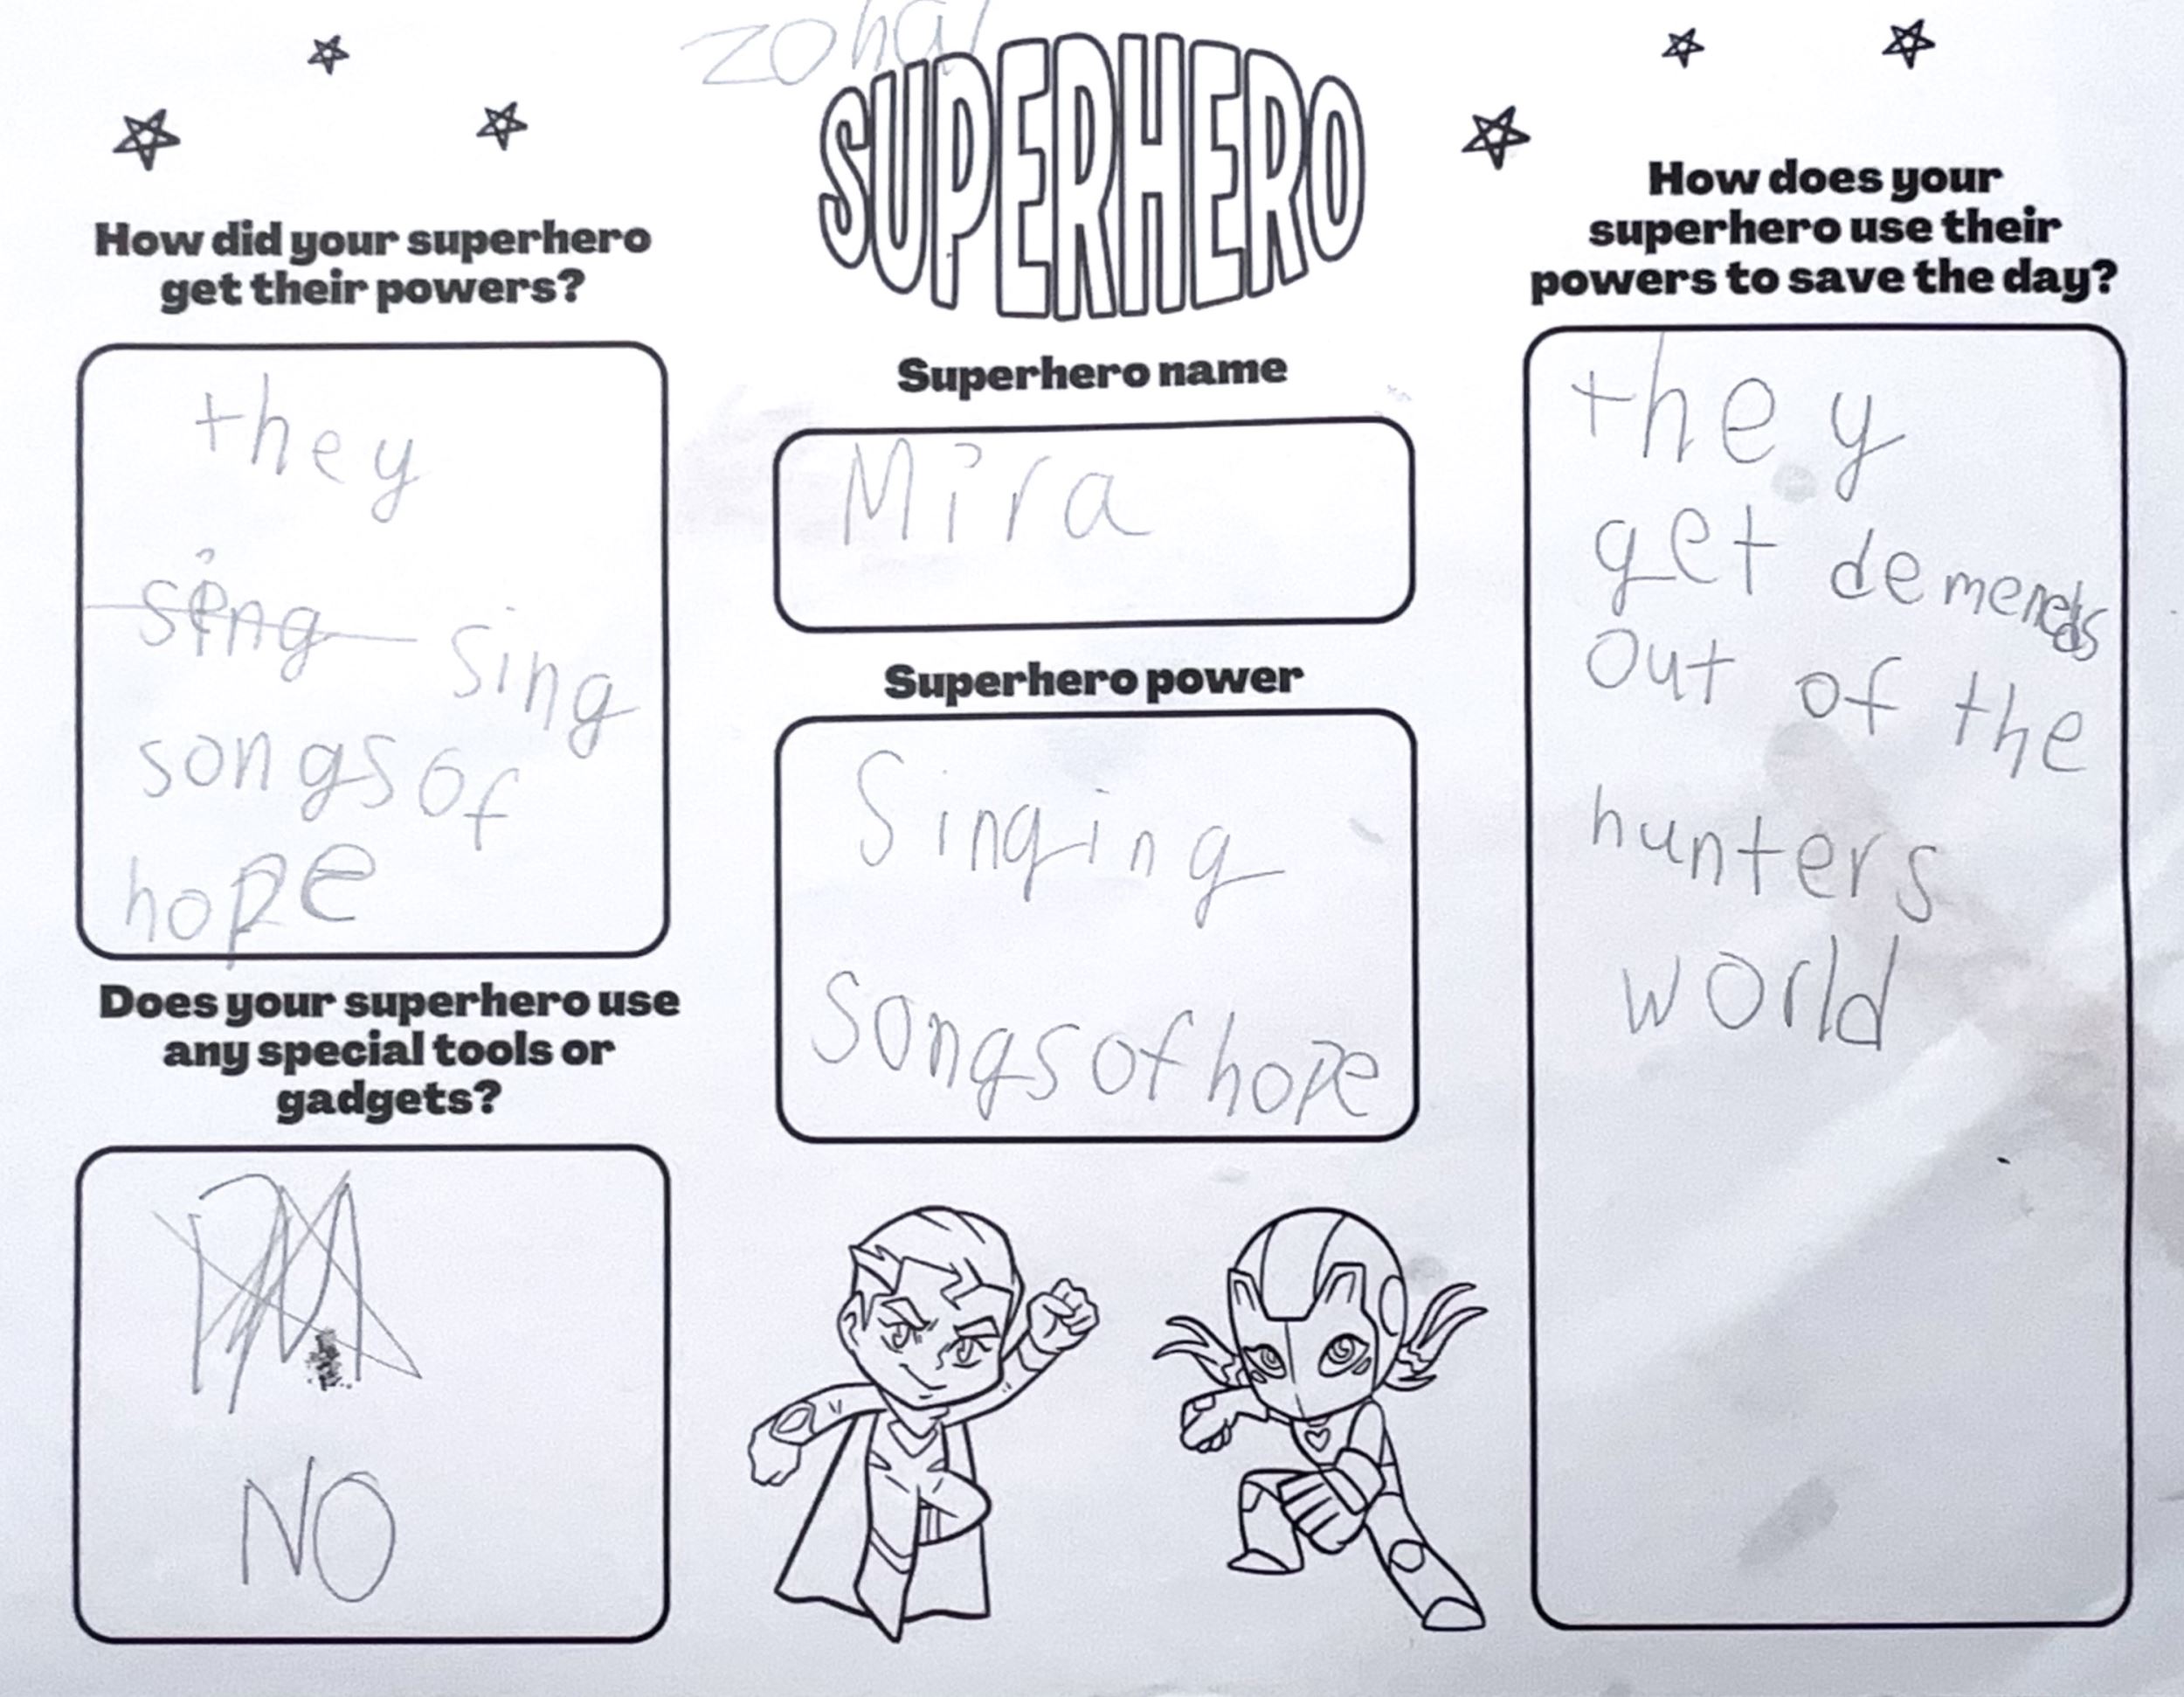 zohal
SUPERHERO
How did your superhero
get their powers?
they
sing sing
songs of
hope
Does your superhero use
any special tools or
gadgets?
NO
Superhero name
Mira
Superhero power
Singing
Songs of hope
How does your
superhero use their
powers to save the day?
they
get demends
out of the
hunters
world